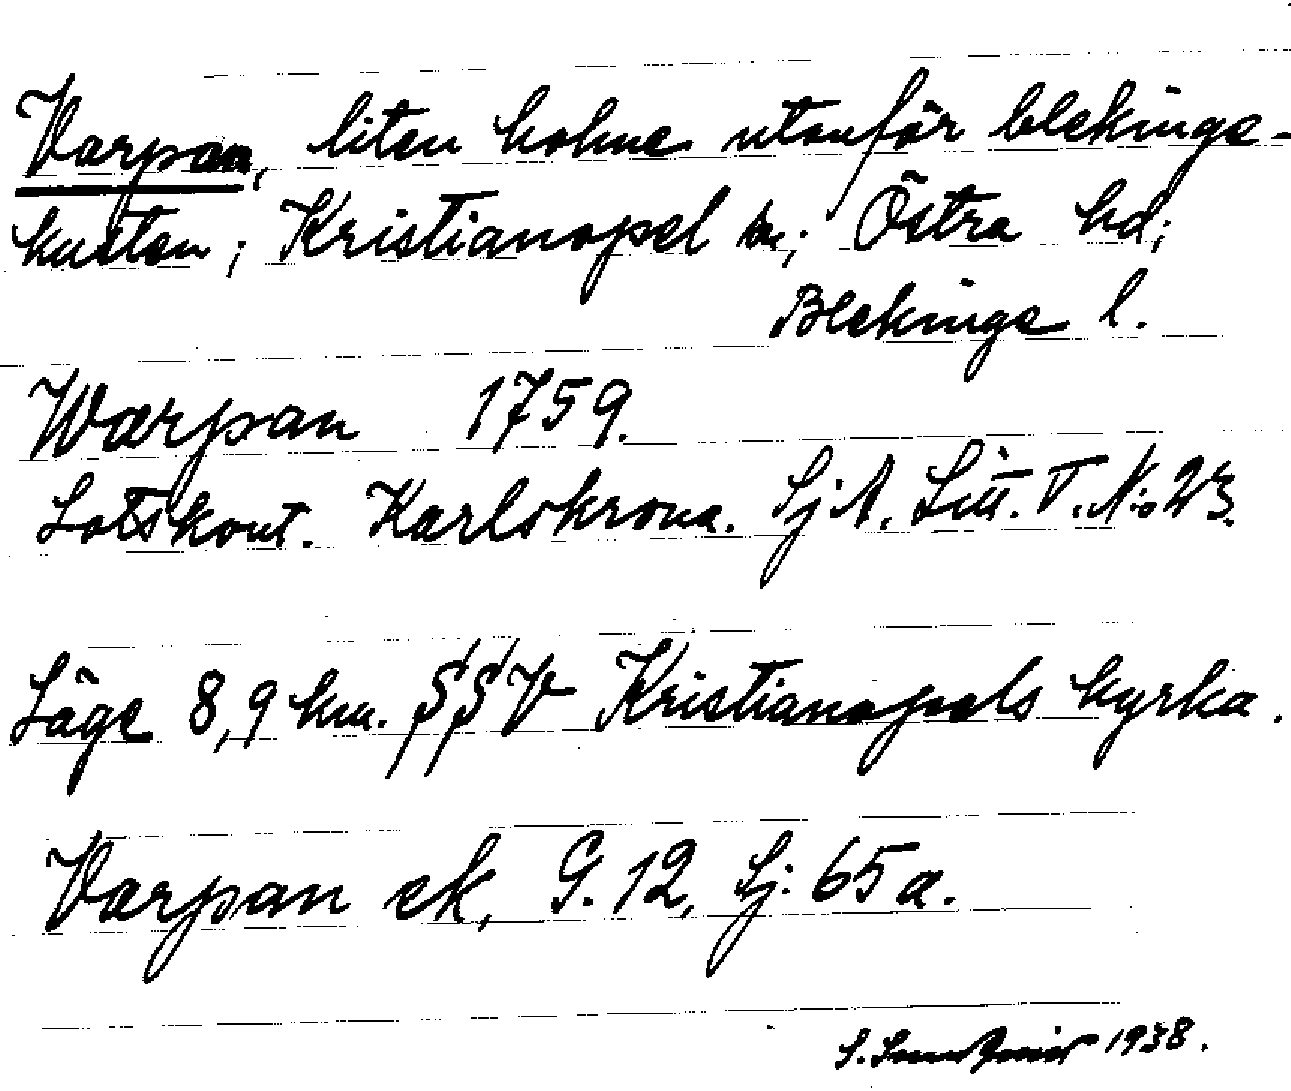 Varpan, liten holme utanför blekinge-
kusten; Kristianopel sn; Östra hd;
Blekinge l.
Warpan 1759.
Lotskont. Karlskrona. Sj.A. Litt. T. N:o 23.
Läge 8,9 km. SSV Kristianopels kyrka.
Varpan ek, G. 12, Sj: 65 a.
S. 1938.